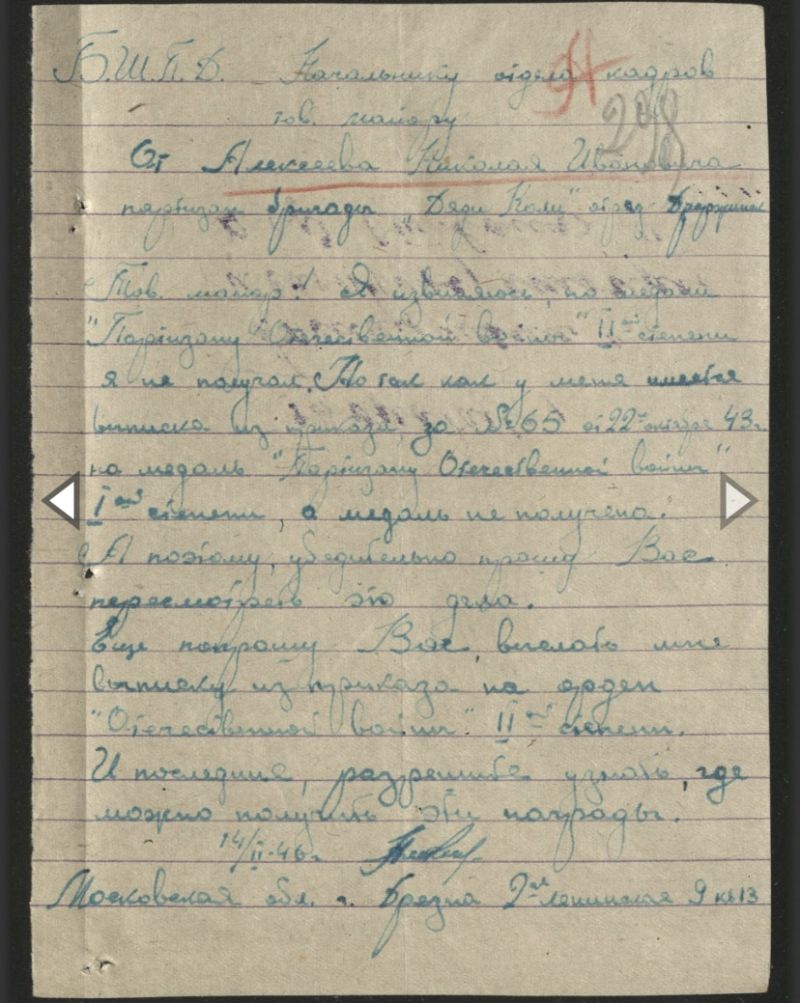 Б.Ш.П.Д. Начальнику отдела кадров
тов. майору
298
От Алексеева Николая Ивановича
партизан бригады "Дяди Коли" отряд
Тов. майор! Я извиняюсь, но медали
"Партизану Отечественной войны" II ой степени
я не получал. Но так как у меня имеется
выписка из приказа, за № 65 от 22 октября 43 г.
на медаль "Партизану Отечественной войны"
I ой степени, а медаль не получена.
А поэтому, убедительно прошу Вас
пересмотреть это дела.
Еще попрошу Вас, выслать мне
выписку из приказа на орден
"Отечественной войны" II ой степени.
И последние, разрешите узнать, где
можно получить эти награды.
14/II-46 г.
Московская обл. г. 2ая Ленинская 9 кв 13